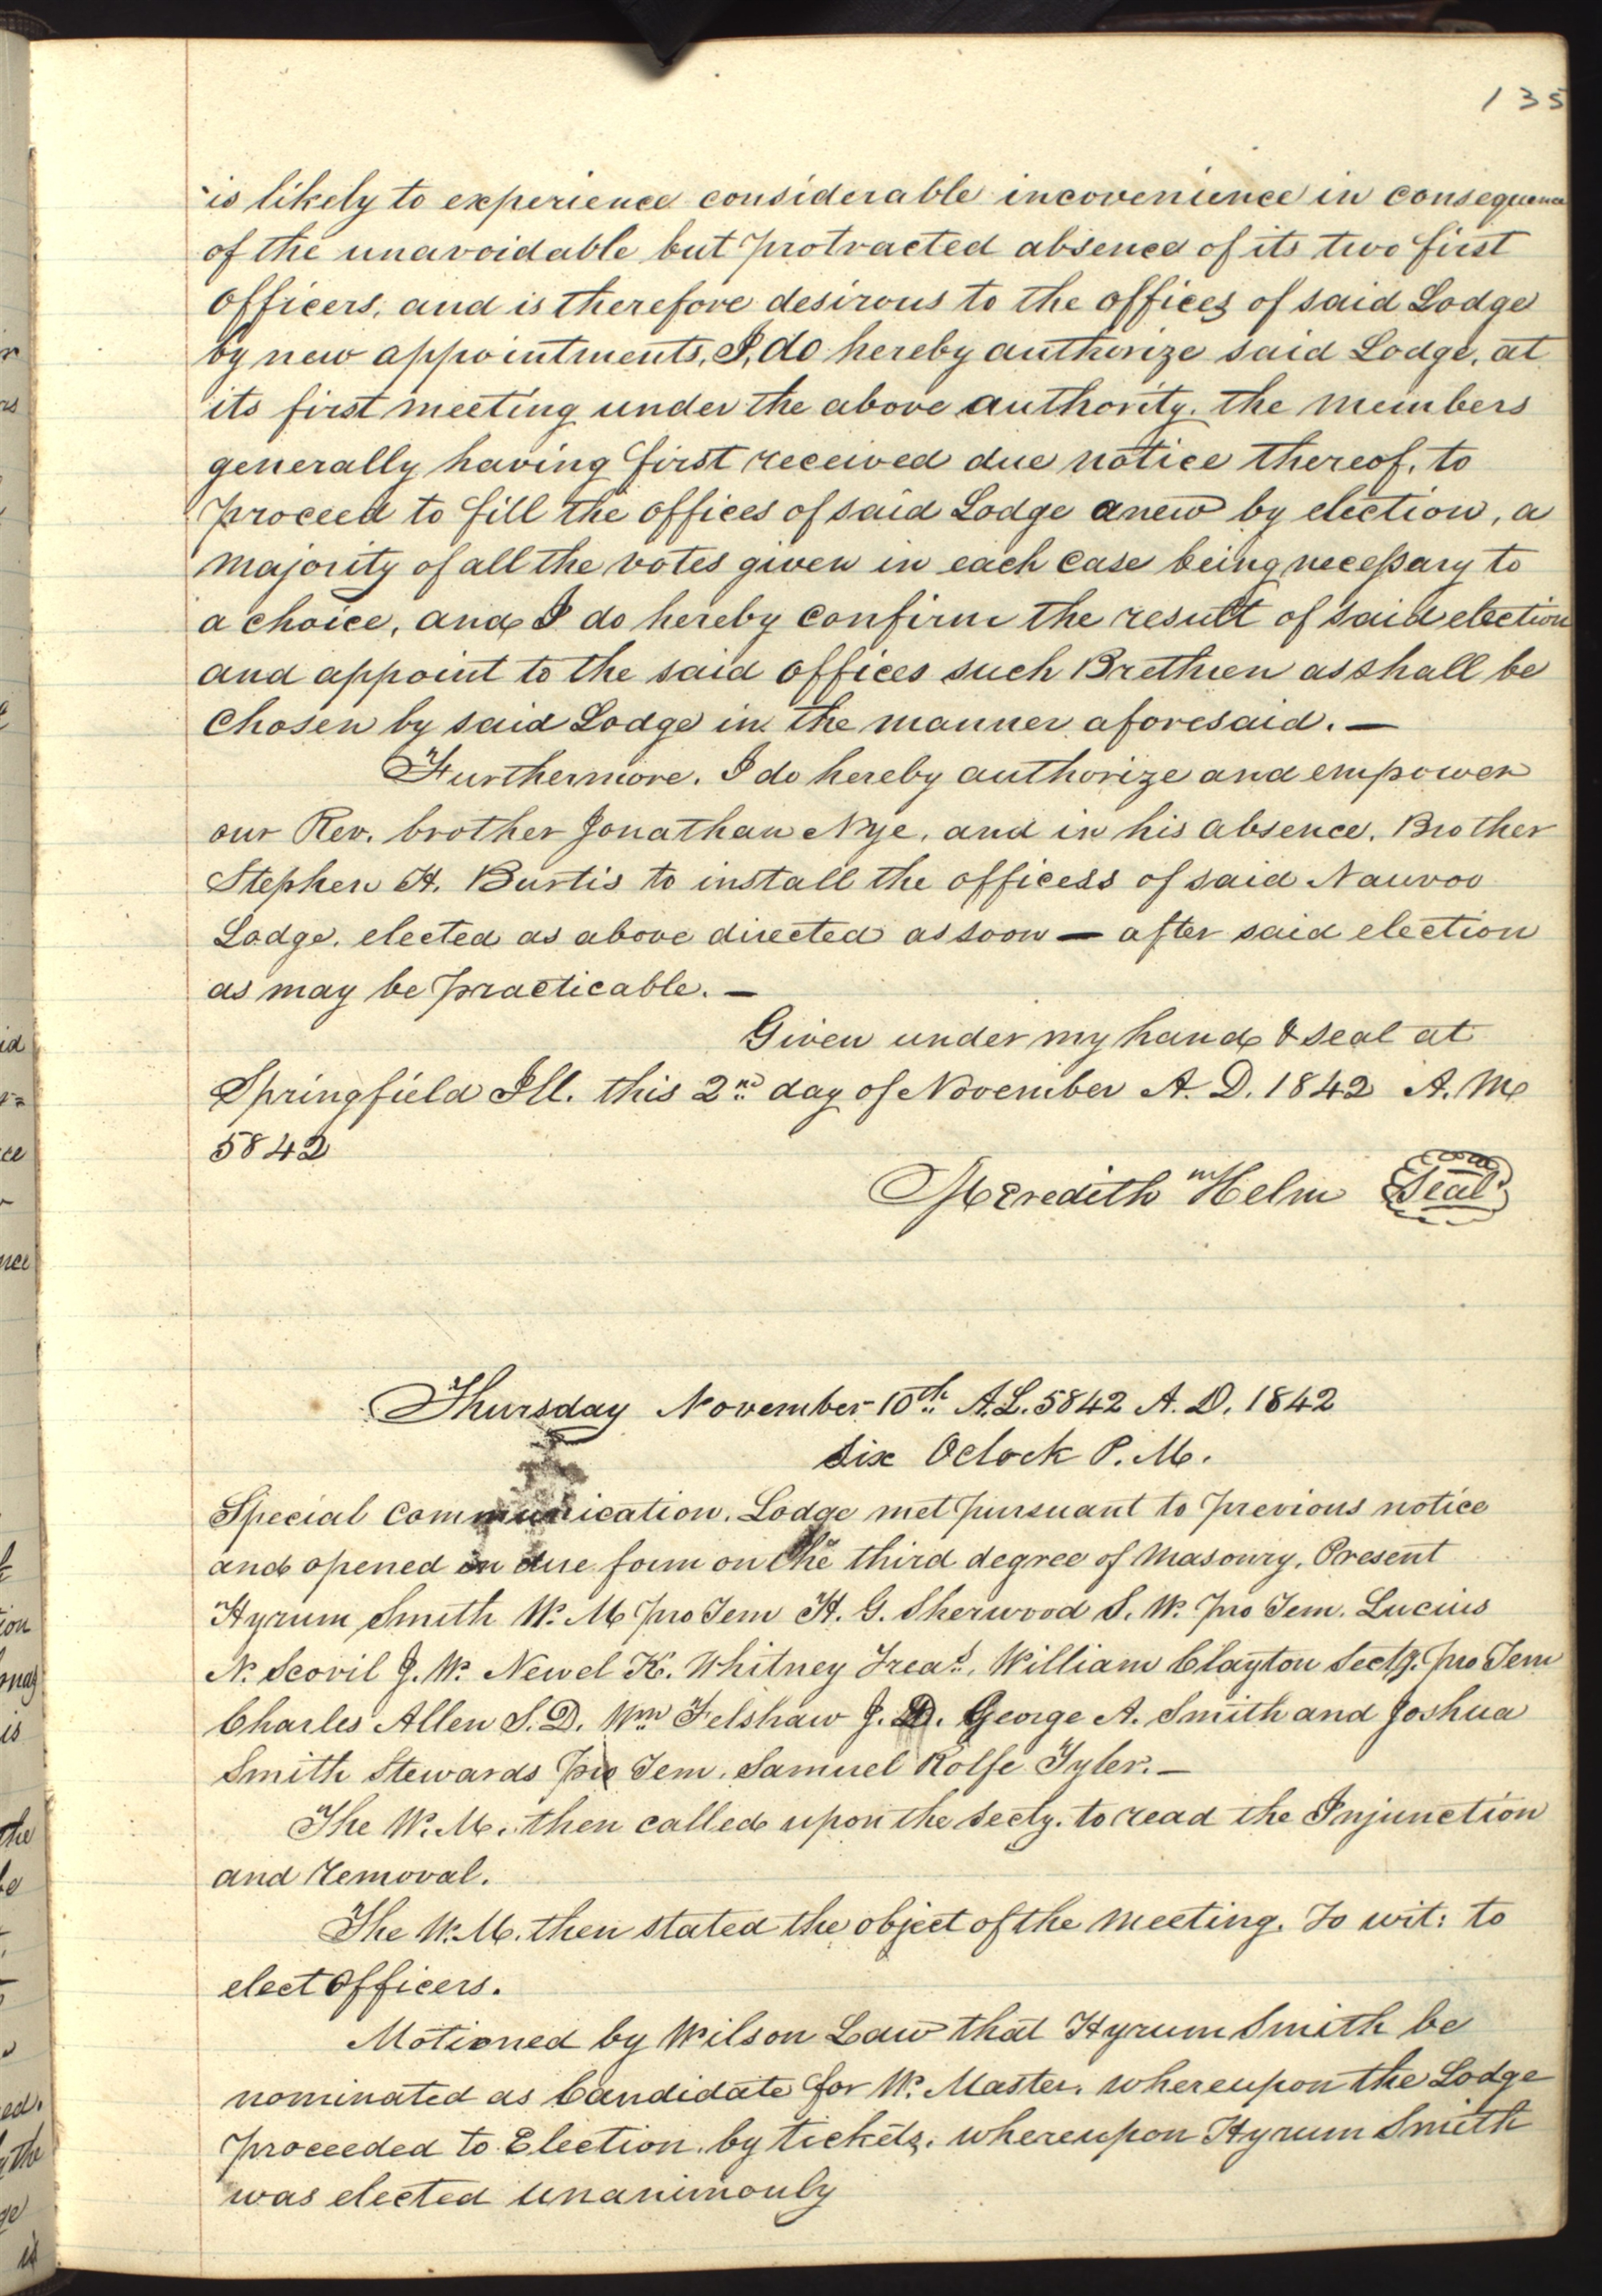 135
is likely to experience considerable incovenience in consequence
of the unavoidable but protracted absence of its two first
officers, and is therefore desirous to the offices of said Lodge
by new appointments, I, do hereby authorize said Lodge, at
its first meeting under the above authority, the members
generally having first received due notice thereof, to
proceed to fill the offices of said Lodge anew by election, a
majority of all the votes given in each case being necessary to
a choice, and I do hereby confirm the result of said election
and appoint to the said offices such Brethren as shall be
chosen by said Lodge in the manner aforesaid. —
Furthermore. I do hereby authorize and empower
our Rev. brother Jonathan Nye, and in his absence, Brother
Stephen H. Burtis to install the officess of said Nauvoo
Lodge, elected as above directed as soon — after said election
as may be practicable. —
Given under my hand & seal at
Springfield Ill. this 2nd day of November A. D. 1842 A. M
5842
Meredith m Helm Seal
Thursday November 10th A. L. 5842 A. D. 1842
Six Oclock P. M.
Special Communication. Lodge met pursuant to previous notice
and opened in due form on the third degree of Masonry. Present
Hyrum Smith W. M pro Tem H. G. Sherwood S. W. pro Tem. Lucius
N. Scovil J. W. Newel K. Whitney Treas. William Clayton Secty. pro Tem
Charles Allen S. D. Wm Felshaw J. D. George A. Smith and Joshua
Smith Stewards pro Tem. Samuel Rolfe Tyler. —
The W. M. then called upon the Secty. to read the Injunction
and removal.
The W. M. then stated the object of the meeting. To wit: to
elect Officers.
Motioned by Wilson Law that Hyrum Smith be
nominated as Candidate for W. Master, whereupon the Lodge
proceeded to Election, by tickets, whereupon Hyrum Smith
was elected unanimouly